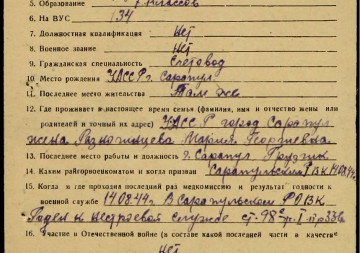 5. Образование 7 классов
6. На ВУС 134
7. Должностная квалификация нет
8. Военное звание нет
9. Гражданская специальность счетовод
10. Место рождения УАССР г. Сарапул
11. Последнее место жительства Там же
12. Где проживает в настоящее время семья (фамилия, имя и отчество жены или
родителей и точный их адрес) УАССР город Сарапул
жена Разножинцева Мария Георгиевна
13. Последнее место работы и должность г. Сарапул Грузчик
14. Каким райгорвоенкоматом и когда призван Сарапульский РВК 14.08.44г.
15. Когда и где проходил последний раз медкомиссию и результат годности к
военной службе 14.08.44г. В Сарапульском РОВК
Годен к нестроевой службе ст. 98
16. Участие в Отечественной войне (в составе какой последней части в качестве
нет